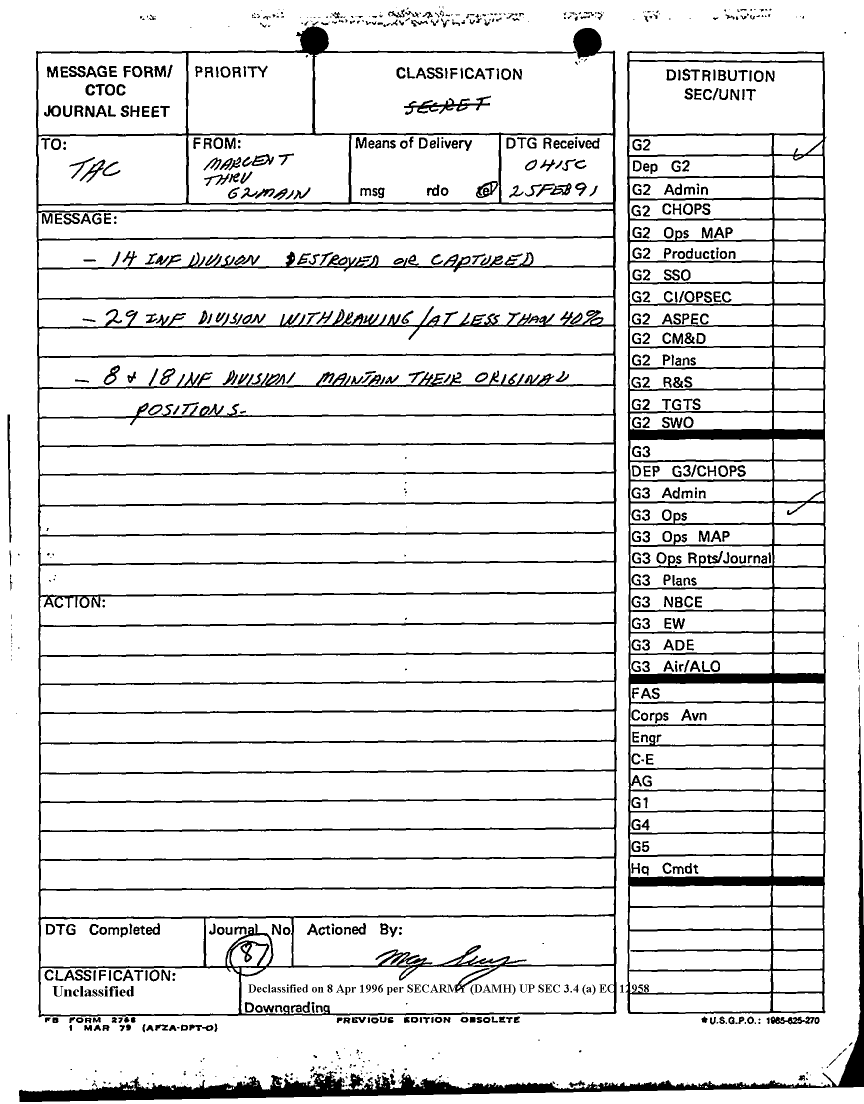 MESSAGE FORM/
CTOC
JOURNAL SHEET
PRIORITY
CLASSIFICATION
SECRET
TO:
TAC
FROM:
MARCENT
THRU
G2MAIN
Means of Delivery
msg rdo
DTG Received
0415C
25FEB91
MESSAGE:
- 14 INF DIVISION DESTROYED OR CAPTURED
- 29 INF DIVISION WITHDRAWING/AT LESS THAN 40%
- 8 + 18 INF DIVISION MAINTAIN THEIR ORIGINAL
POSITIONS-
ACTION:
DTG Completed
Journal No
87
Actioned By:
CLASSIFICATION:
Unclassified
Declassified on 8 Apr 1996 per SECARMY (DAMH) UP SEC 3.4 (a) EO 12958
Downgrading
FB FORM 2768
1 MAR 79 (AFZA-DPT-O)
PREVIOUS EDITION OBSOLETE
DISTRIBUTION
SEC/UNIT
G2
Dep G2
G2 Admin
G2 CHOPS
G2 Ops MAP
G2 Production
G2 SSO
G2 CI/OPSEC
G2 ASPEC
G2 CM&D
G2 Plans
G2 R&S
G2 TGTS
G2 SWO
G3
DEP G3/CHOPS
G3 Admin
G3 Ops
G3 Ops MAP
G3 Ops Rpts/Journal
G3 Plans
G3 NBCE
G3 EW
G3 ADE
G3 Air/ALO
FAS
Corps Avn
Engr
C-E
AG
G1
G4
G5
Hq Cmdt
*U.S.G.P.O.: 1985-625-270